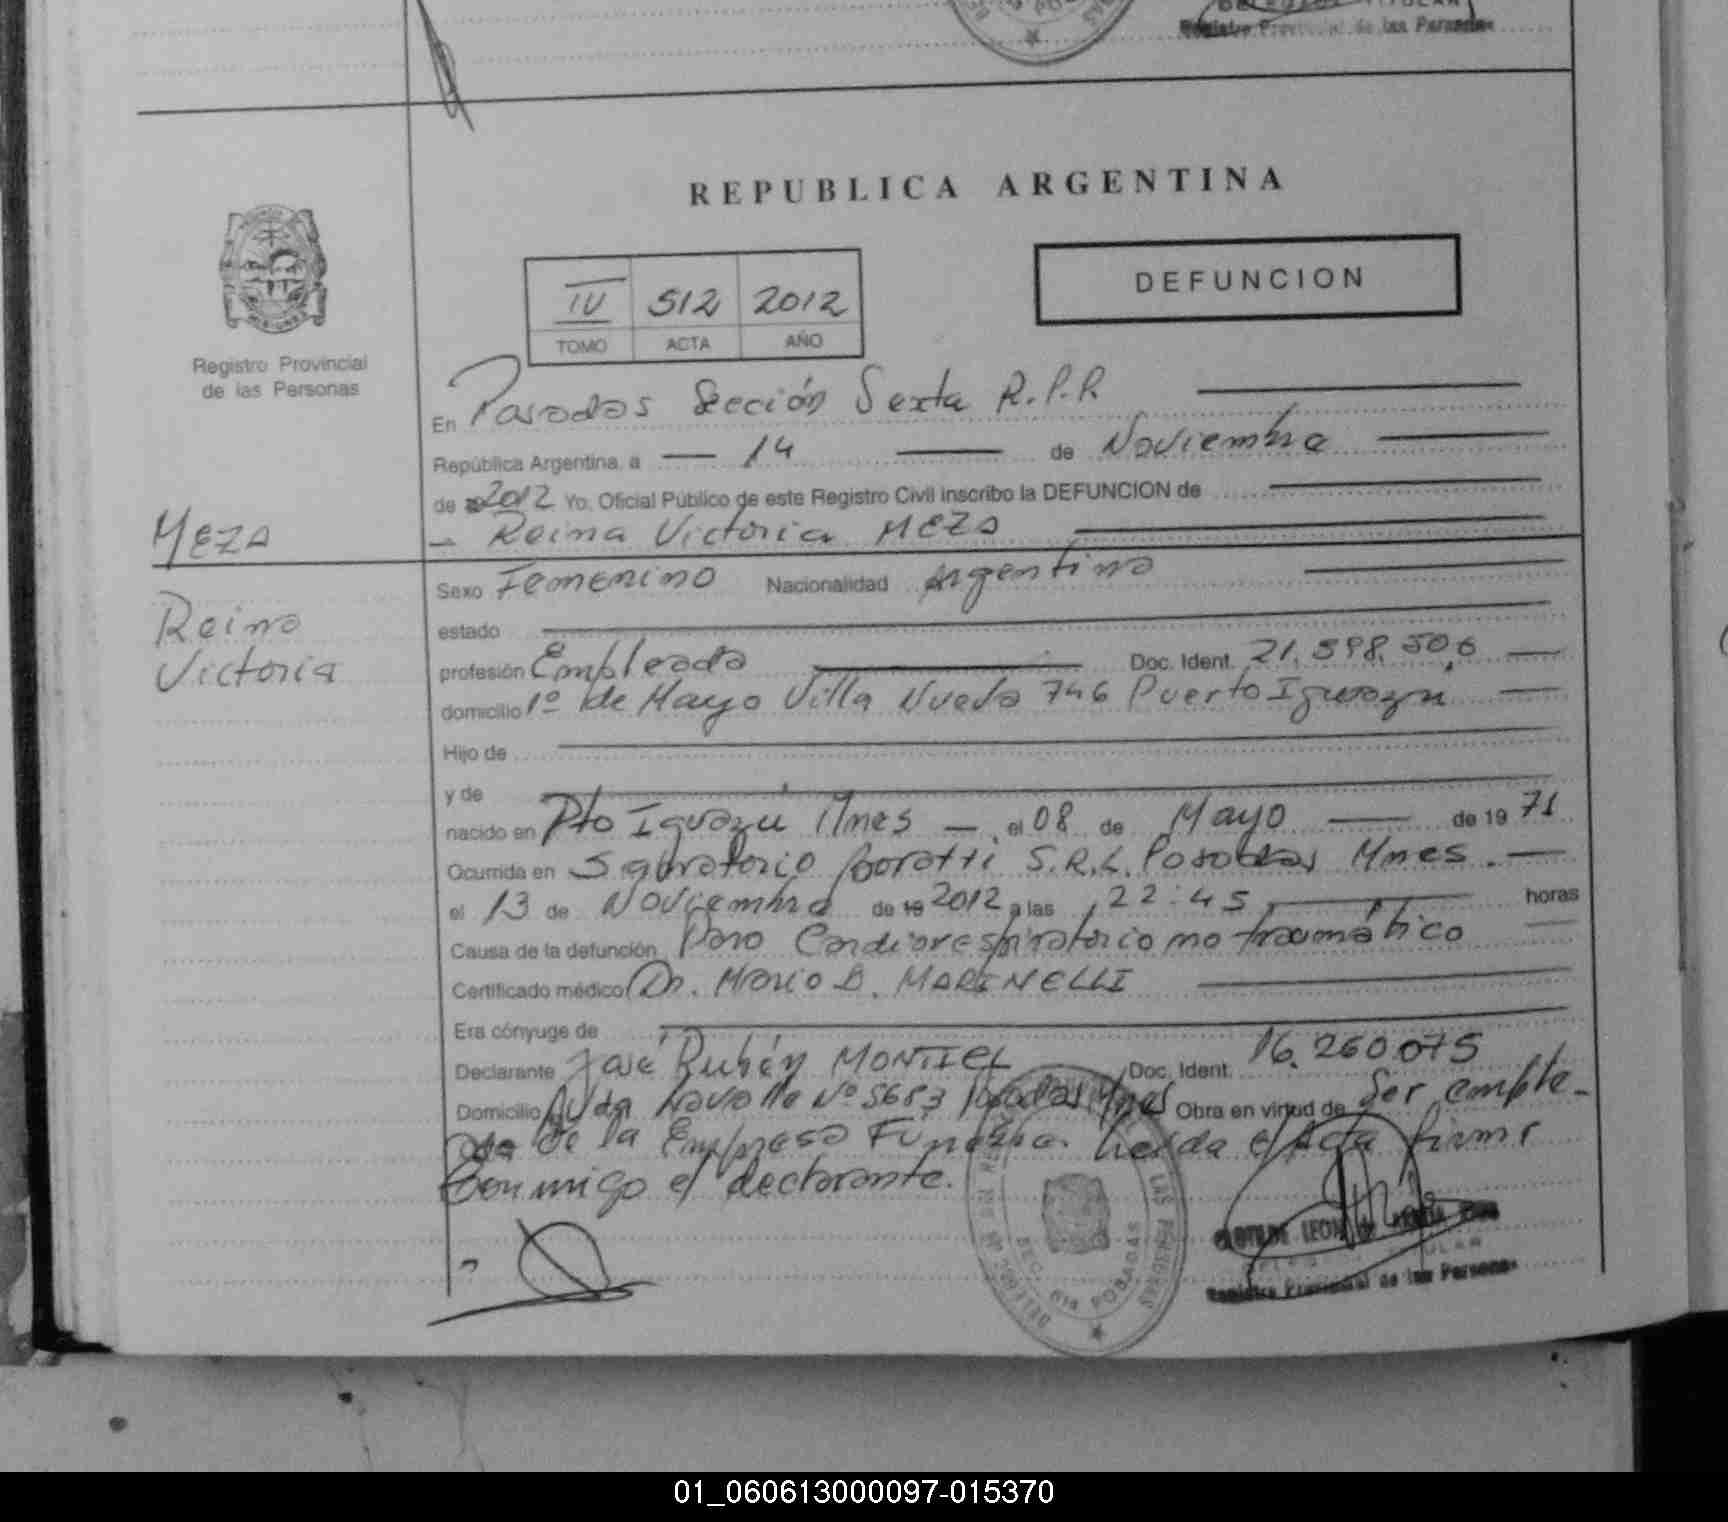 Registro Provincial de las Personas
REPUBLICA ARGENTINA
DEFUNCION
IV 512 2012
TOMO ACTA AÑO
Registro Provincial
de las Personas
En Posadas Sección Sexta R.P.P.
República Argentina, a 14 de Noviembre
de 2012 Yo, Oficial Público de este Registro Civil inscribo la DEFUNCION de
Reina Victoria MEZA
MEZA
Reina
Victoria
Sexo Femenino Nacionalidad Argentina
estado
profesión Empleada Doc. Ident. 21.598.506
domicilio 1º de Mayo Villa Nueva 746 Puerto Iguazú
Hijo de
y de
nacido en Pto Iguazú Mnes el 08 de Mayo de 1971
Ocurrida en Boratti S.R.L. Posadas Mnes.
el 13 de Noviembre de 19 2012 a las 22:45 horas
Causa de la defunción Paro Cardiorespiratorio no traumático
Certificado médico Dr. Mario D. MARINELLI
Era cónyuge de
Declarante José Rubén MONTIEL Doc. Ident. 16.260.075
Domicilio Avda Lavalle Nº 5683 Posadas Mnes Obra en virtud de Ser emple-
de la Empresa Funebre. Leida el Acta firma
Conmigo el declarante.
SEC. 6ta POSADAS
LAS PERSONAS
CLOTILDE LEON de
Registro Provincial de las Personas
01_060613000097-015370